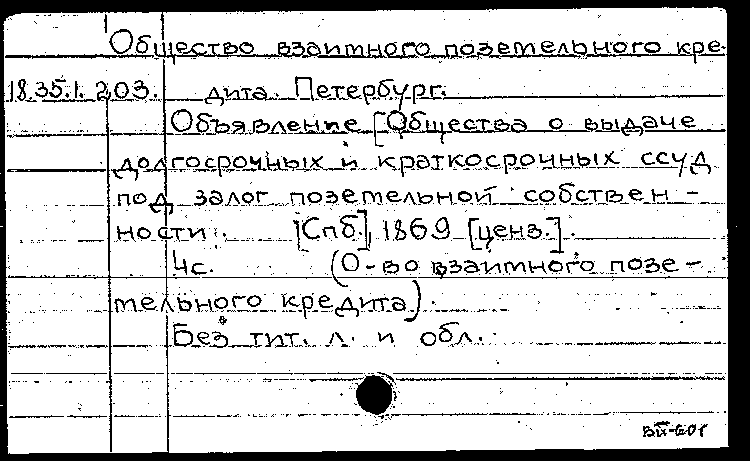 Общество взаимного поземельного кре-
18.35.1.203. дита. Петербург.
Объявление [Общества о выдаче
долгосрочных и краткосрочных ссуд
под залог поземельной собствен-
ности. [Спб.], 1869 [ценз.].
4с. (О-во взаимного позе-
мельного кредита).
Без тит. л. и обл.